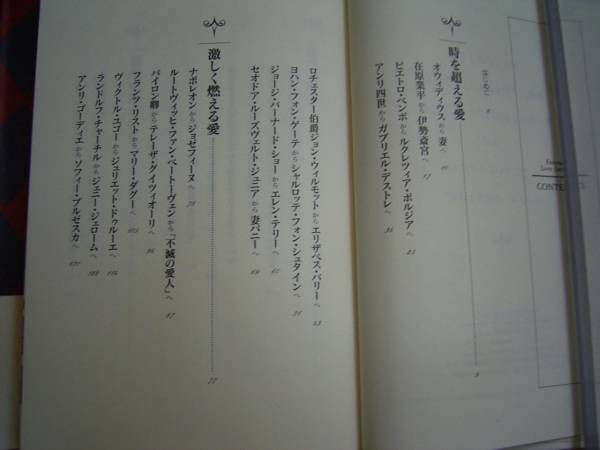 CONTENTS
はじめに
時を超える愛 9
オウィディウスから妻へ
在原業平から伊勢斎宮へ 17
ピエトロ・ベンボからルクレツィア・ボルジアへ
アンリ四世からガブリエル・デストレへ
ロチェスター伯爵ジョン・ウィルモットからエリザベス・バリーへ
ヨハン・フォン・ゲーテからシャルロッテ・フォン・シュタインへ
ジョージ・バーナード・ショーからエレン・テリーへ
セオドア・ルーズヴェルト・ジュニアから妻バニーへ
激しく燃える愛 77
ナポレオンからジョゼフィーヌへ
ルートヴィッヒ・ファン・ベートーヴェンから「不滅の愛人」へ
バイロン卿からテレーザ・グイツィオーリへ
フランツ・リストからマリー・ダグーへ
ヴィクトル・ユゴーからジュリエット・ドゥルーエへ
ランドルフ・チャーチルからジェニー・ジェロームへ
アンリ・ゴーディエからソフィー・ブルゼスカへ